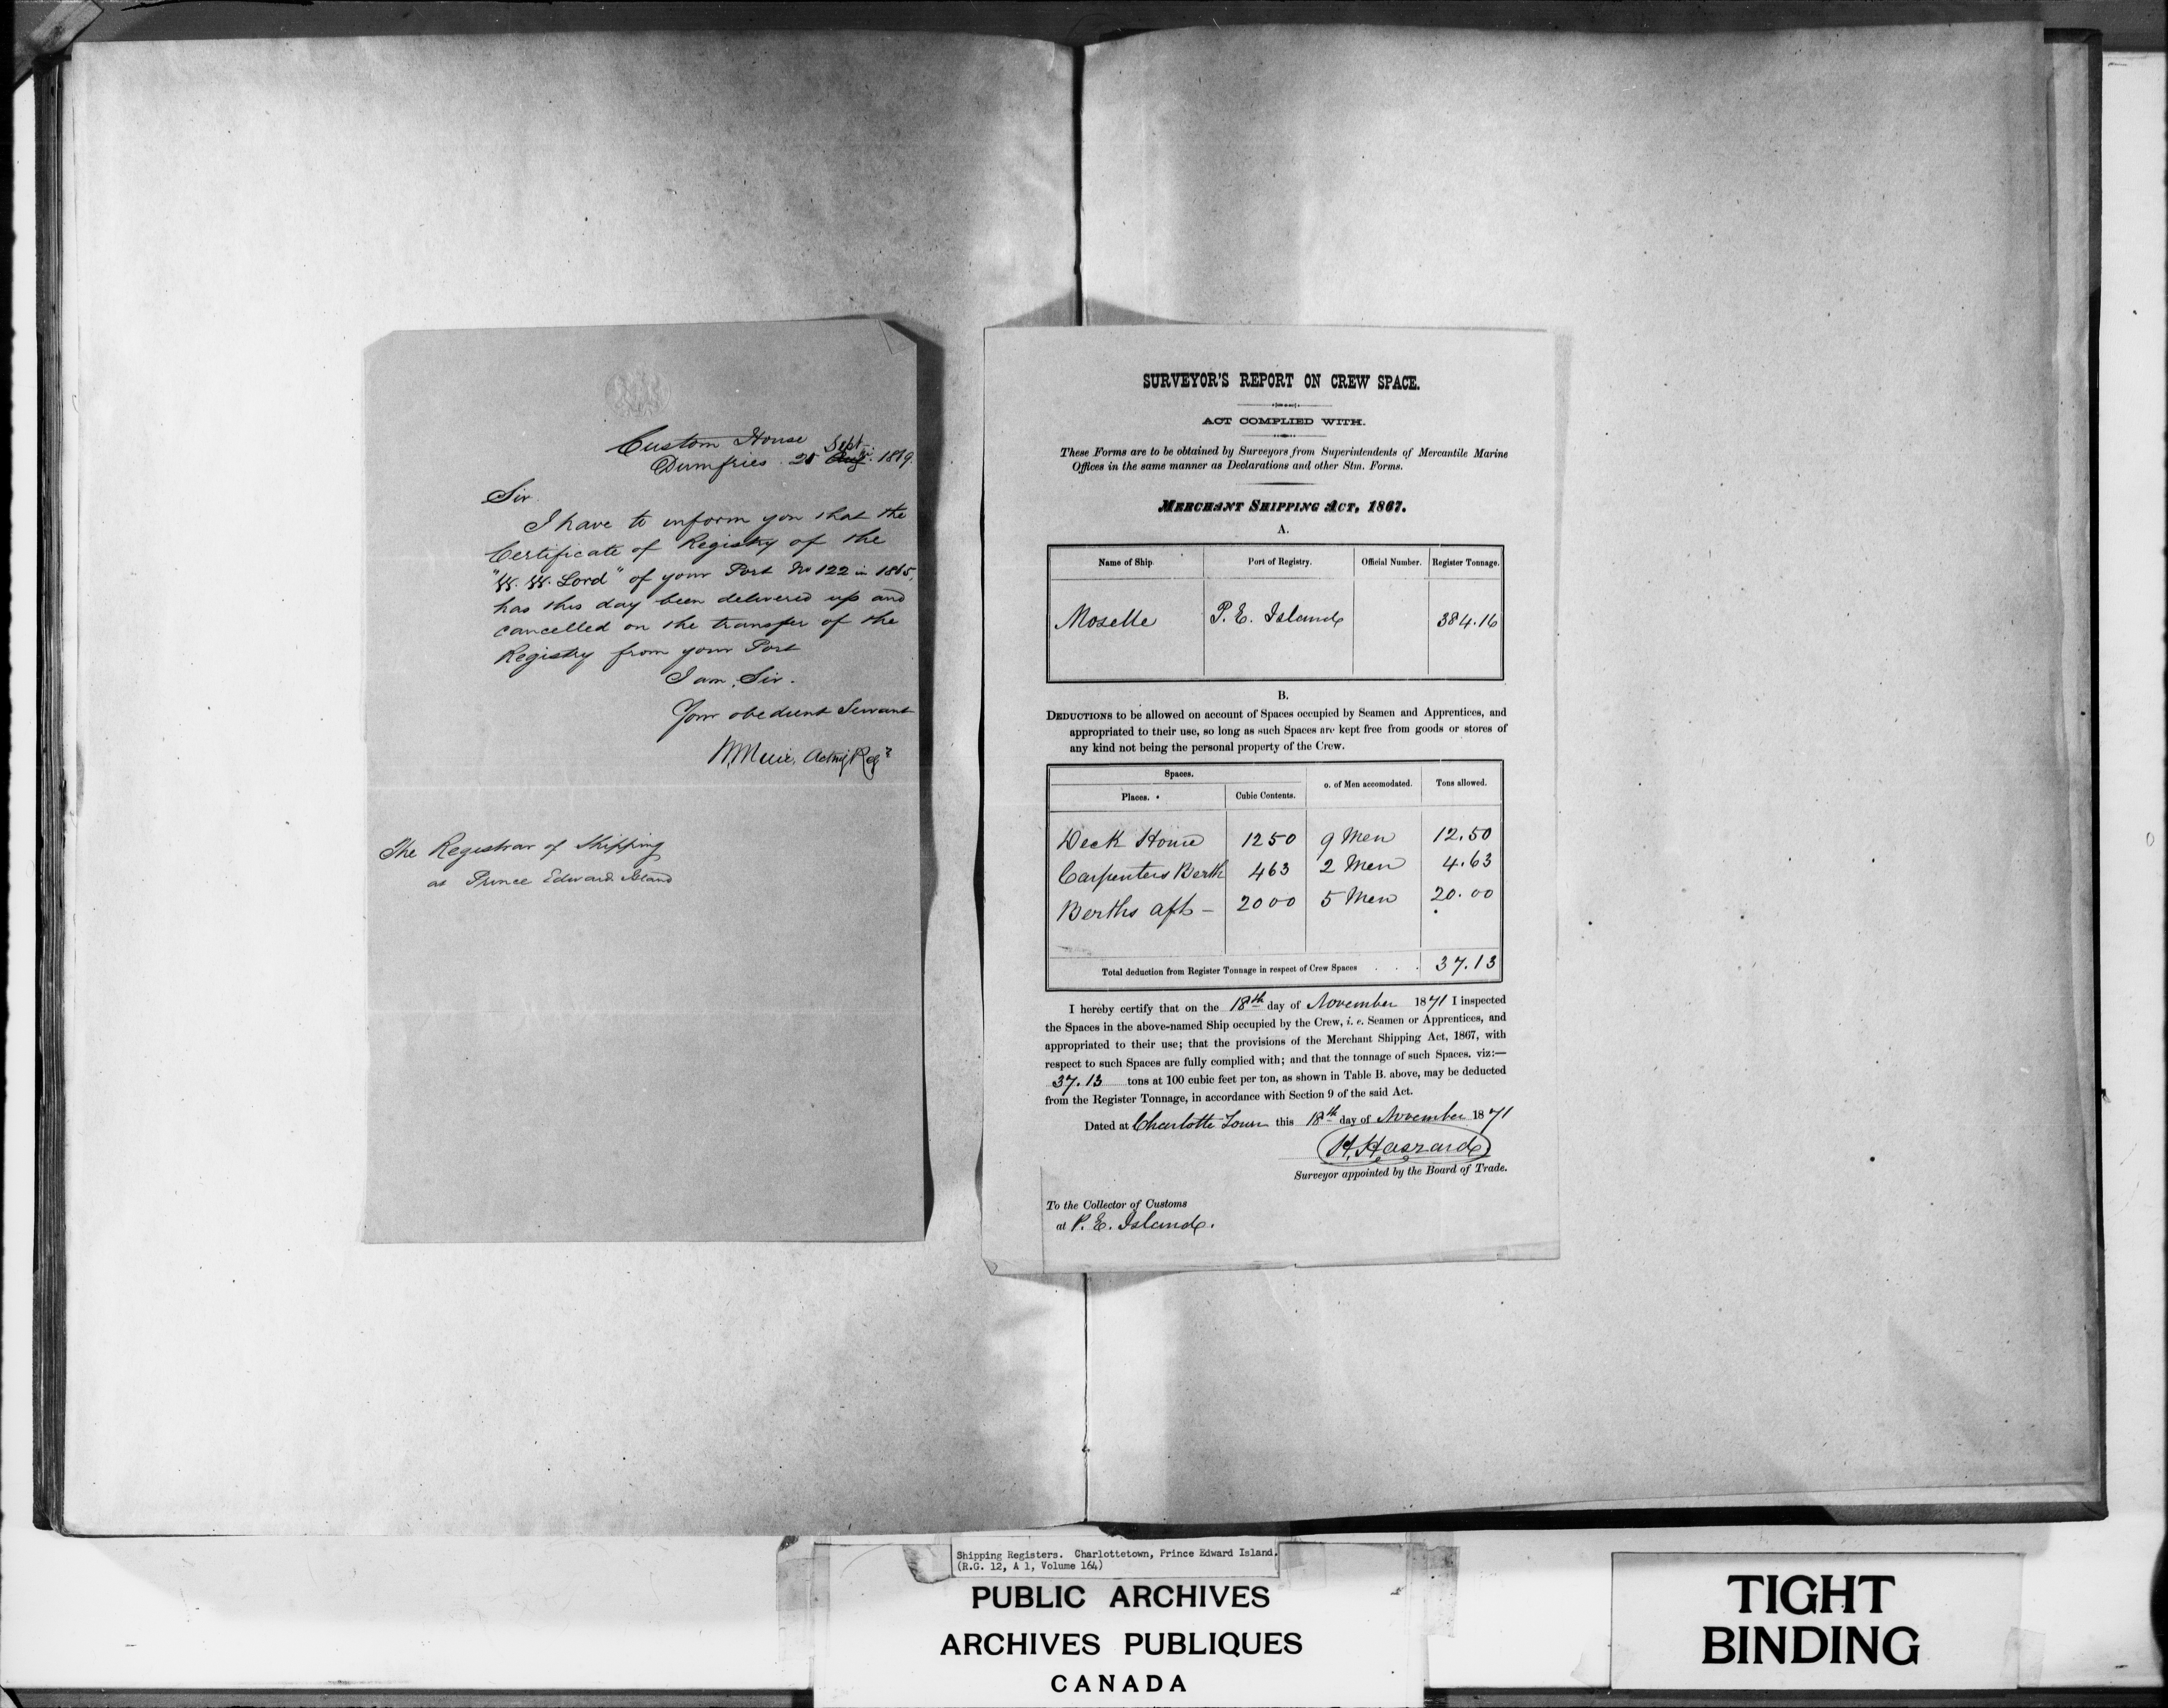 Custom House
Dumfries 25 Sept. 1869
Sir.
I have to inform you that the
Certificate of Registry of the
"W. W. Lord" of your Port No 122 in 1865,
has this day been delivered up and
cancelled on the transfer of the
Registry from your Port
I am, Sir.
Your obedient Servant
W Muir, Acting Regr
The Registrar of Shipping
at Prince Edward Island
SURVEYOR'S REPORT ON CREW SPACE.
ACT COMPLIED WITH.
These Forms are to be obtained by Surveyors from Superintendents of Mercantile Marine
Offices in the same manner as Declarations and other Stm. Forms.
MERCHANT SHIPPING ACT, 1867.
A.
Name of Ship Port of Registry. Official Number. Register Tonnage.
Moselle P. E. Island 384.16
B.
DEDUCTIONS to be allowed on account of Spaces occupied by Seamen and Apprentices, and
appropriated to their use, so long as such Spaces are kept free from goods or stores of
any kind not being the personal property of the Crew.
Spaces.
Places. Cubic Contents. o. of Men accomodated. Tons allowed.
Deck House 1250 9 Men 12.50
Carpenters Berth 463 2 Men 4.63
Berths aft - 2000 5 Men 20.00
Total deduction from Register Tonnage in respect of Crew Spaces . . . 37.13
I hereby certify that on the 18th day of November 1871 I inspected
the Spaces in the above-named Ship occupied by the Crew, i. e. Seamen or Apprentices, and
appropriated to their use; that the provisions of the Merchant Shipping Act, 1867, with
respect to such Spaces are fully complied with; and that the tonnage of such Spaces, viz:—
37.13 tons at 100 cubic feet per ton, as shown in Table B. above, may be deducted
from the Register Tonnage, in accordance with Section 9 of the said Act.
Dated at Charlotte Town this 18th day of November 1871
H. Haszard
Surveyor appointed by the Board of Trade.
To the Collector of Customs
at P. E. Island.
Shipping Registers. Charlottetown, Prince Edward Island.
(R.G. 12, A 1, Volume 164)
PUBLIC ARCHIVES
ARCHIVES PUBLIQUES
CANADA
TIGHT
BINDING